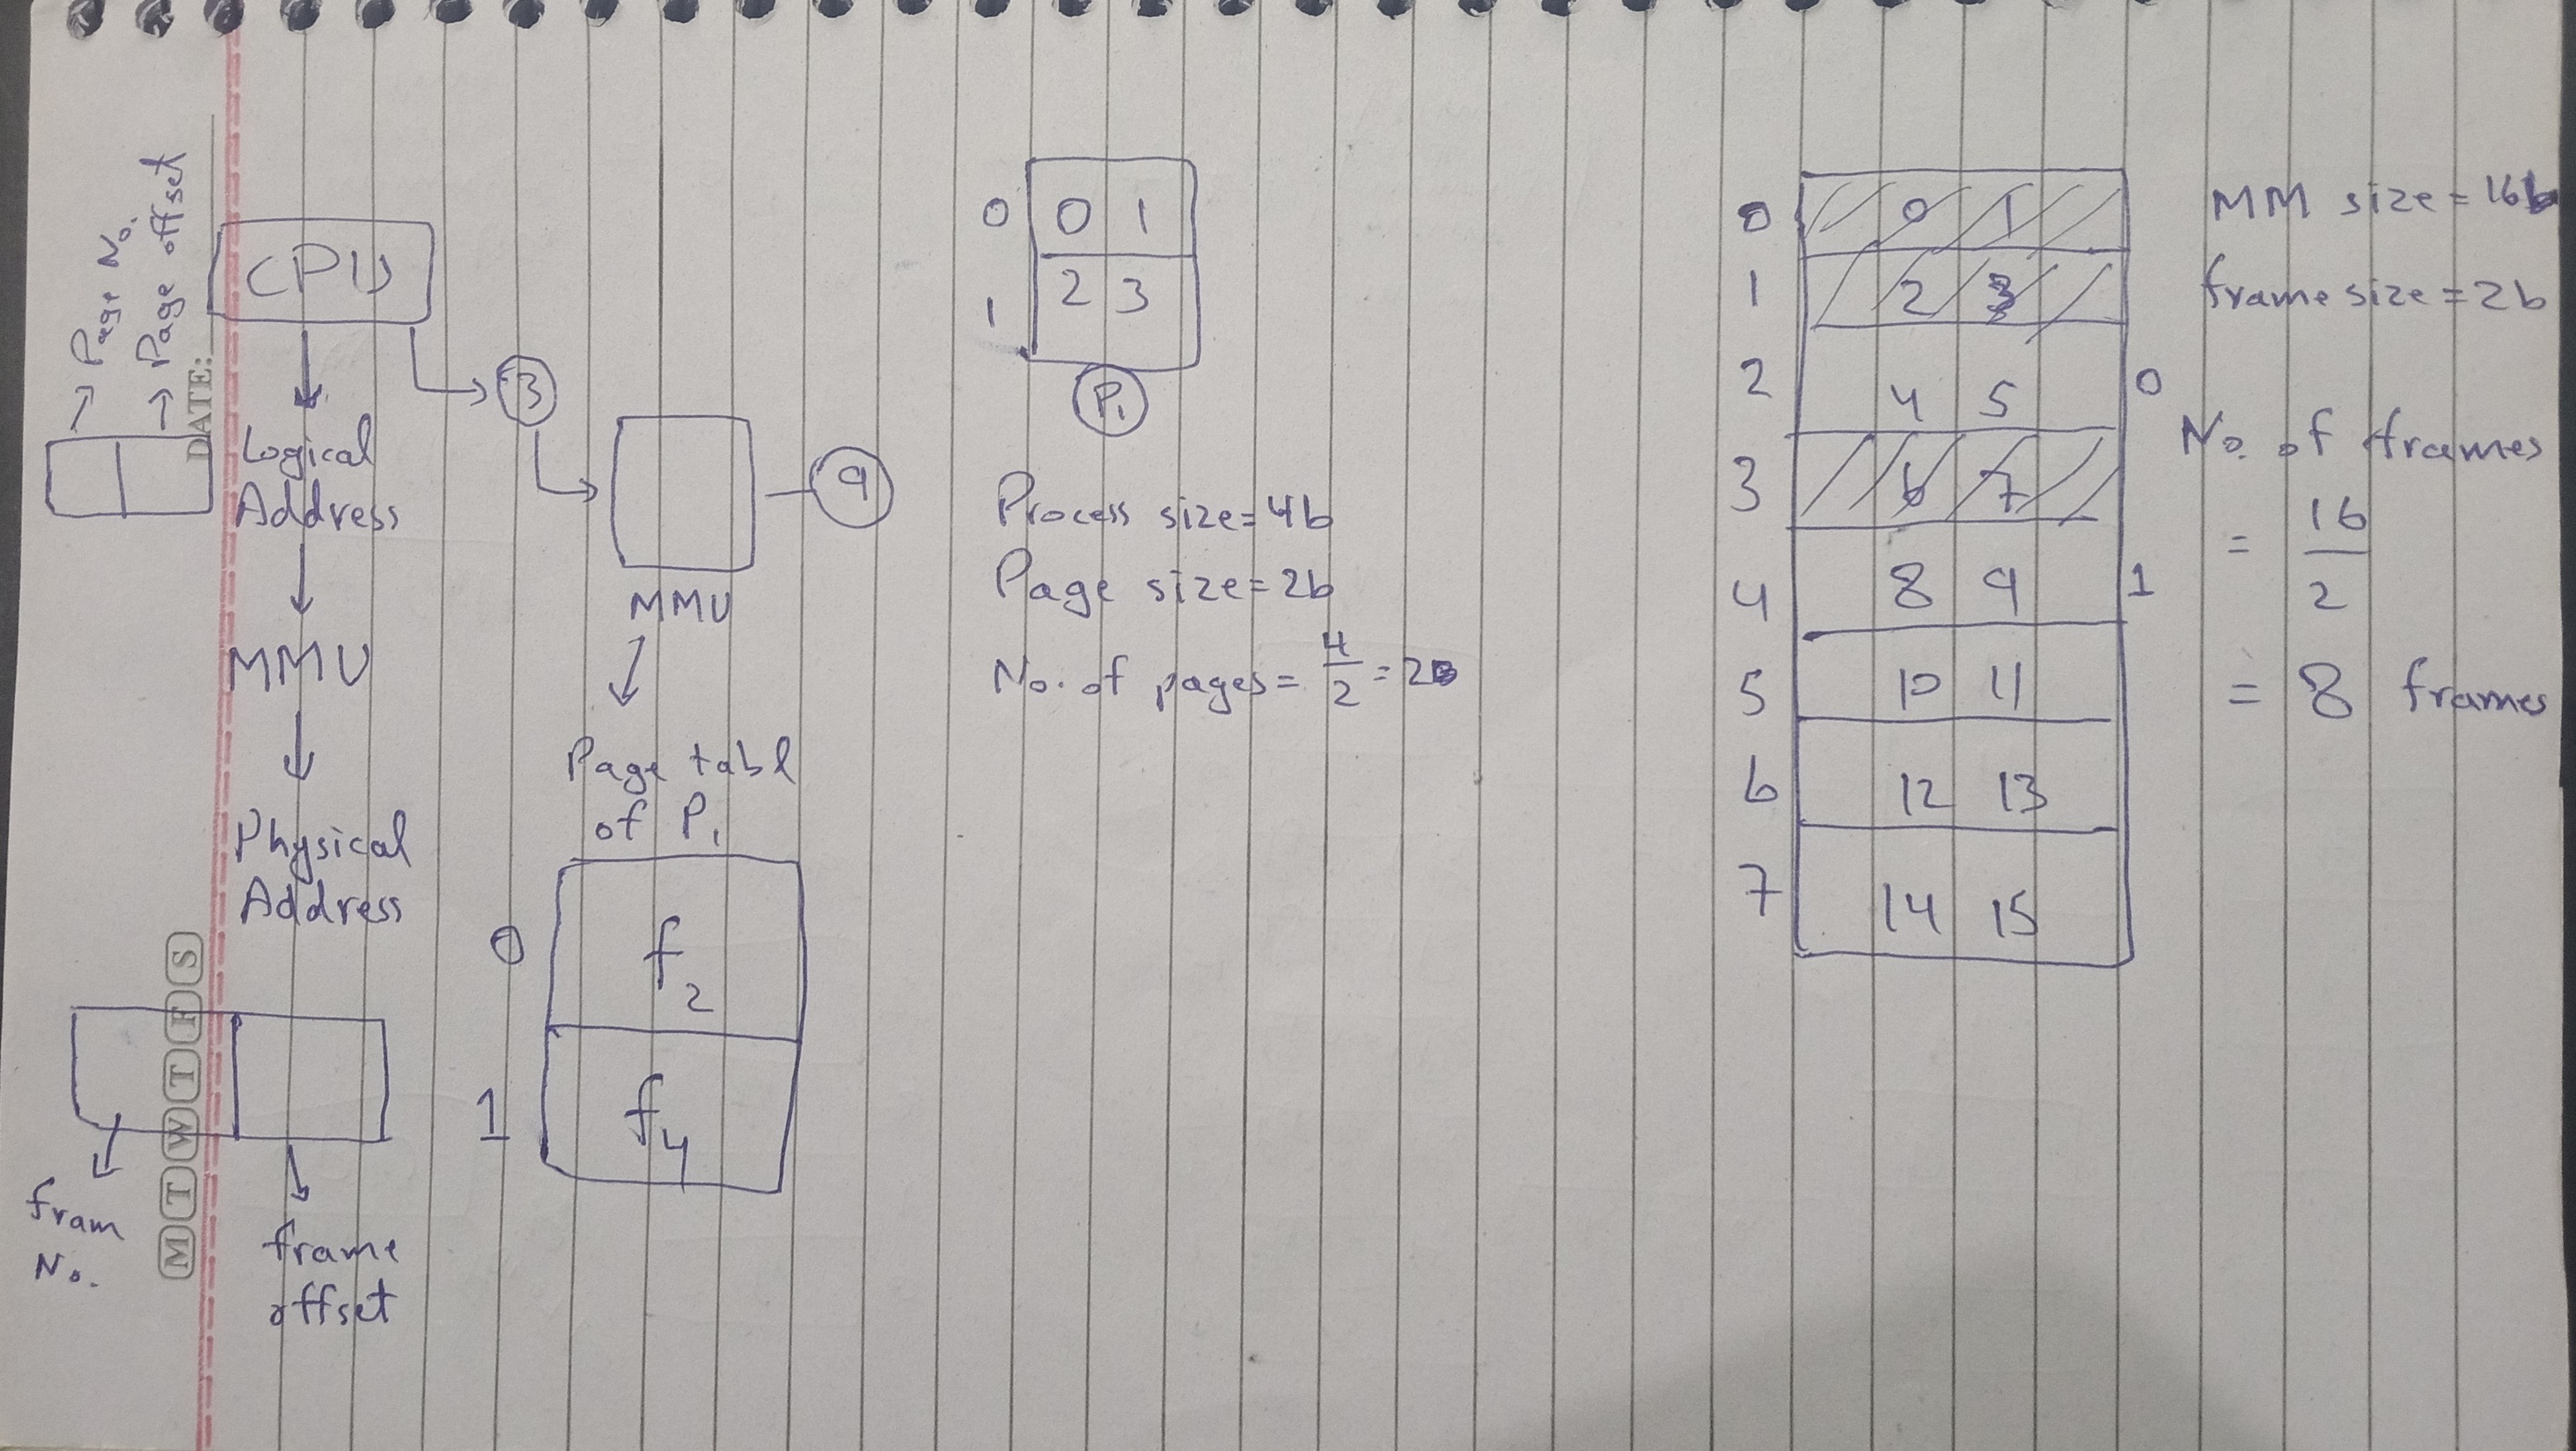 Page No.
Page offset
DATE:
CPU
Logical
Address
MMU
Physical
Address
fram
No.
frame
offset
M T W T F S
3
9
MMU
Page tabl
of P1
0 f2
1 f4
0 0 1
1 2 3
P1
Process size=4b
Page size=2b
No. of pages= 4/2 =2
0 0 1
1 2 3
2 4 5 0
3 6 7
4 8 9 1
5 10 11
6 12 13
7 14 15
MM size=16b
frame size=2b
No. of frames
= 16/2
= 8 frames